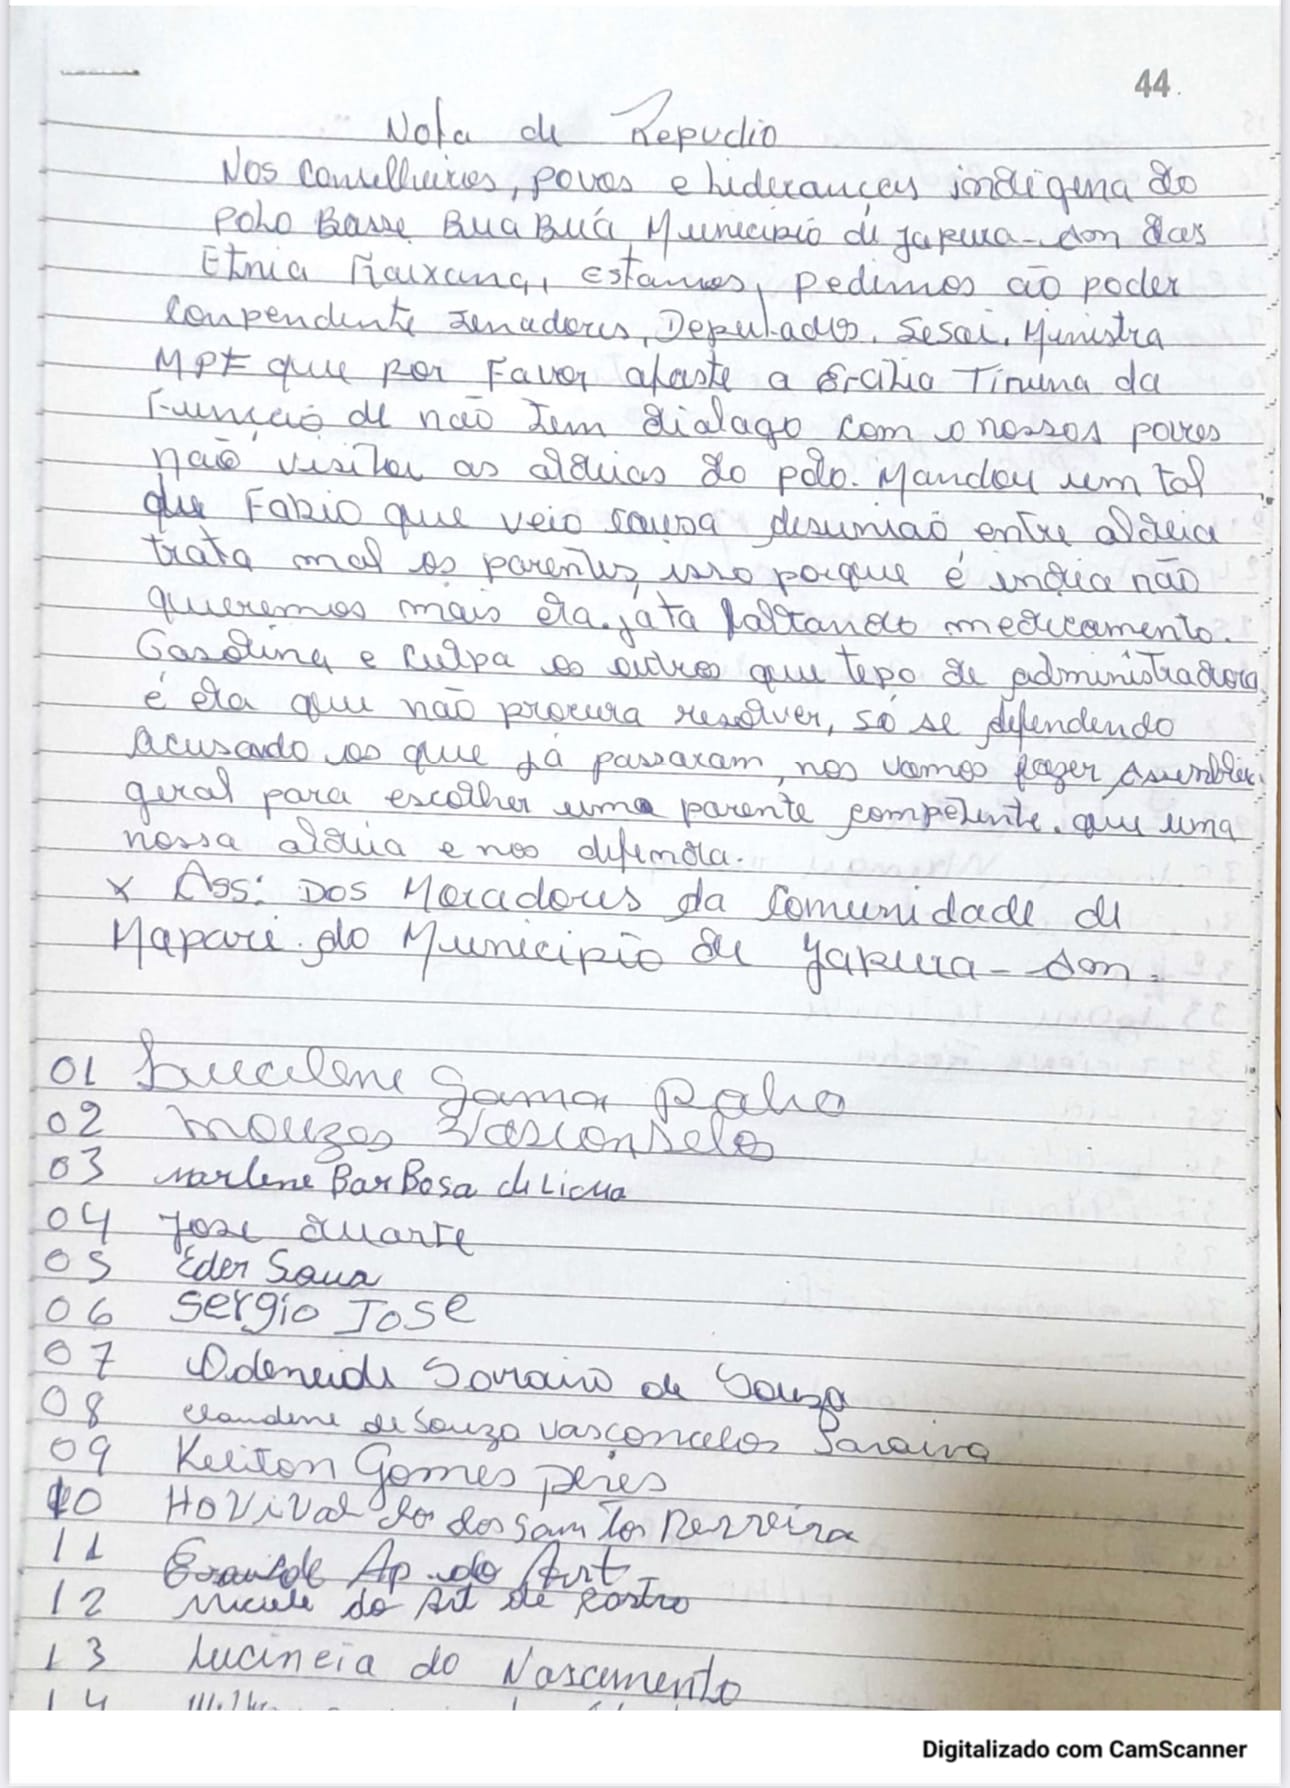 44
Nota de Repudio
Nos Conselheiros, povos e Lideranças indigena do
Polo Basse Bua Buá, Municipio de Japura - Am das
Etnia Maixana, estamos, pedimos ao poder
Conpendente Senadores, Deputados, Sesai, Ministra
MPF que por Favor afaste a Ercilia Tikuna da
Função de não tem dialago com o nossos povos
não visitou as aldeias do polo. Mandou um tal
de Fabio que veio causa desunião entre aldeia
trata mal os parentes, isso porque é india não
queremos mais ela. já ta faltando medicamento.
Gasolina e Culpa os outros que tipo de administradora
é ela que não procura resolver, só se defendendo
acusando os que já passaram, nos vamos fazer Assembleia
geral para escolher uma parente competente. que uma
nossa aldeia e nos defenda.
x Ass: Dos Moradores da Comunidade de
Mapari do Municipio de Japura - Am.
01 Lucilene Gama
02 mouzes Vasconselos
03 Marlene BarBosa de Lima
04 Jose duarte
05 Eder
06 Sergio Jose
07 Odeneide de Souza
08 Claudene de Souza Vasconcelos Saraiva
09 Keliton Gomes peres
10 dos santos
11 Ap. do Art
12 do Art de Castro
13 Lucineia do Nascimento
14
Digitalizado com CamScanner